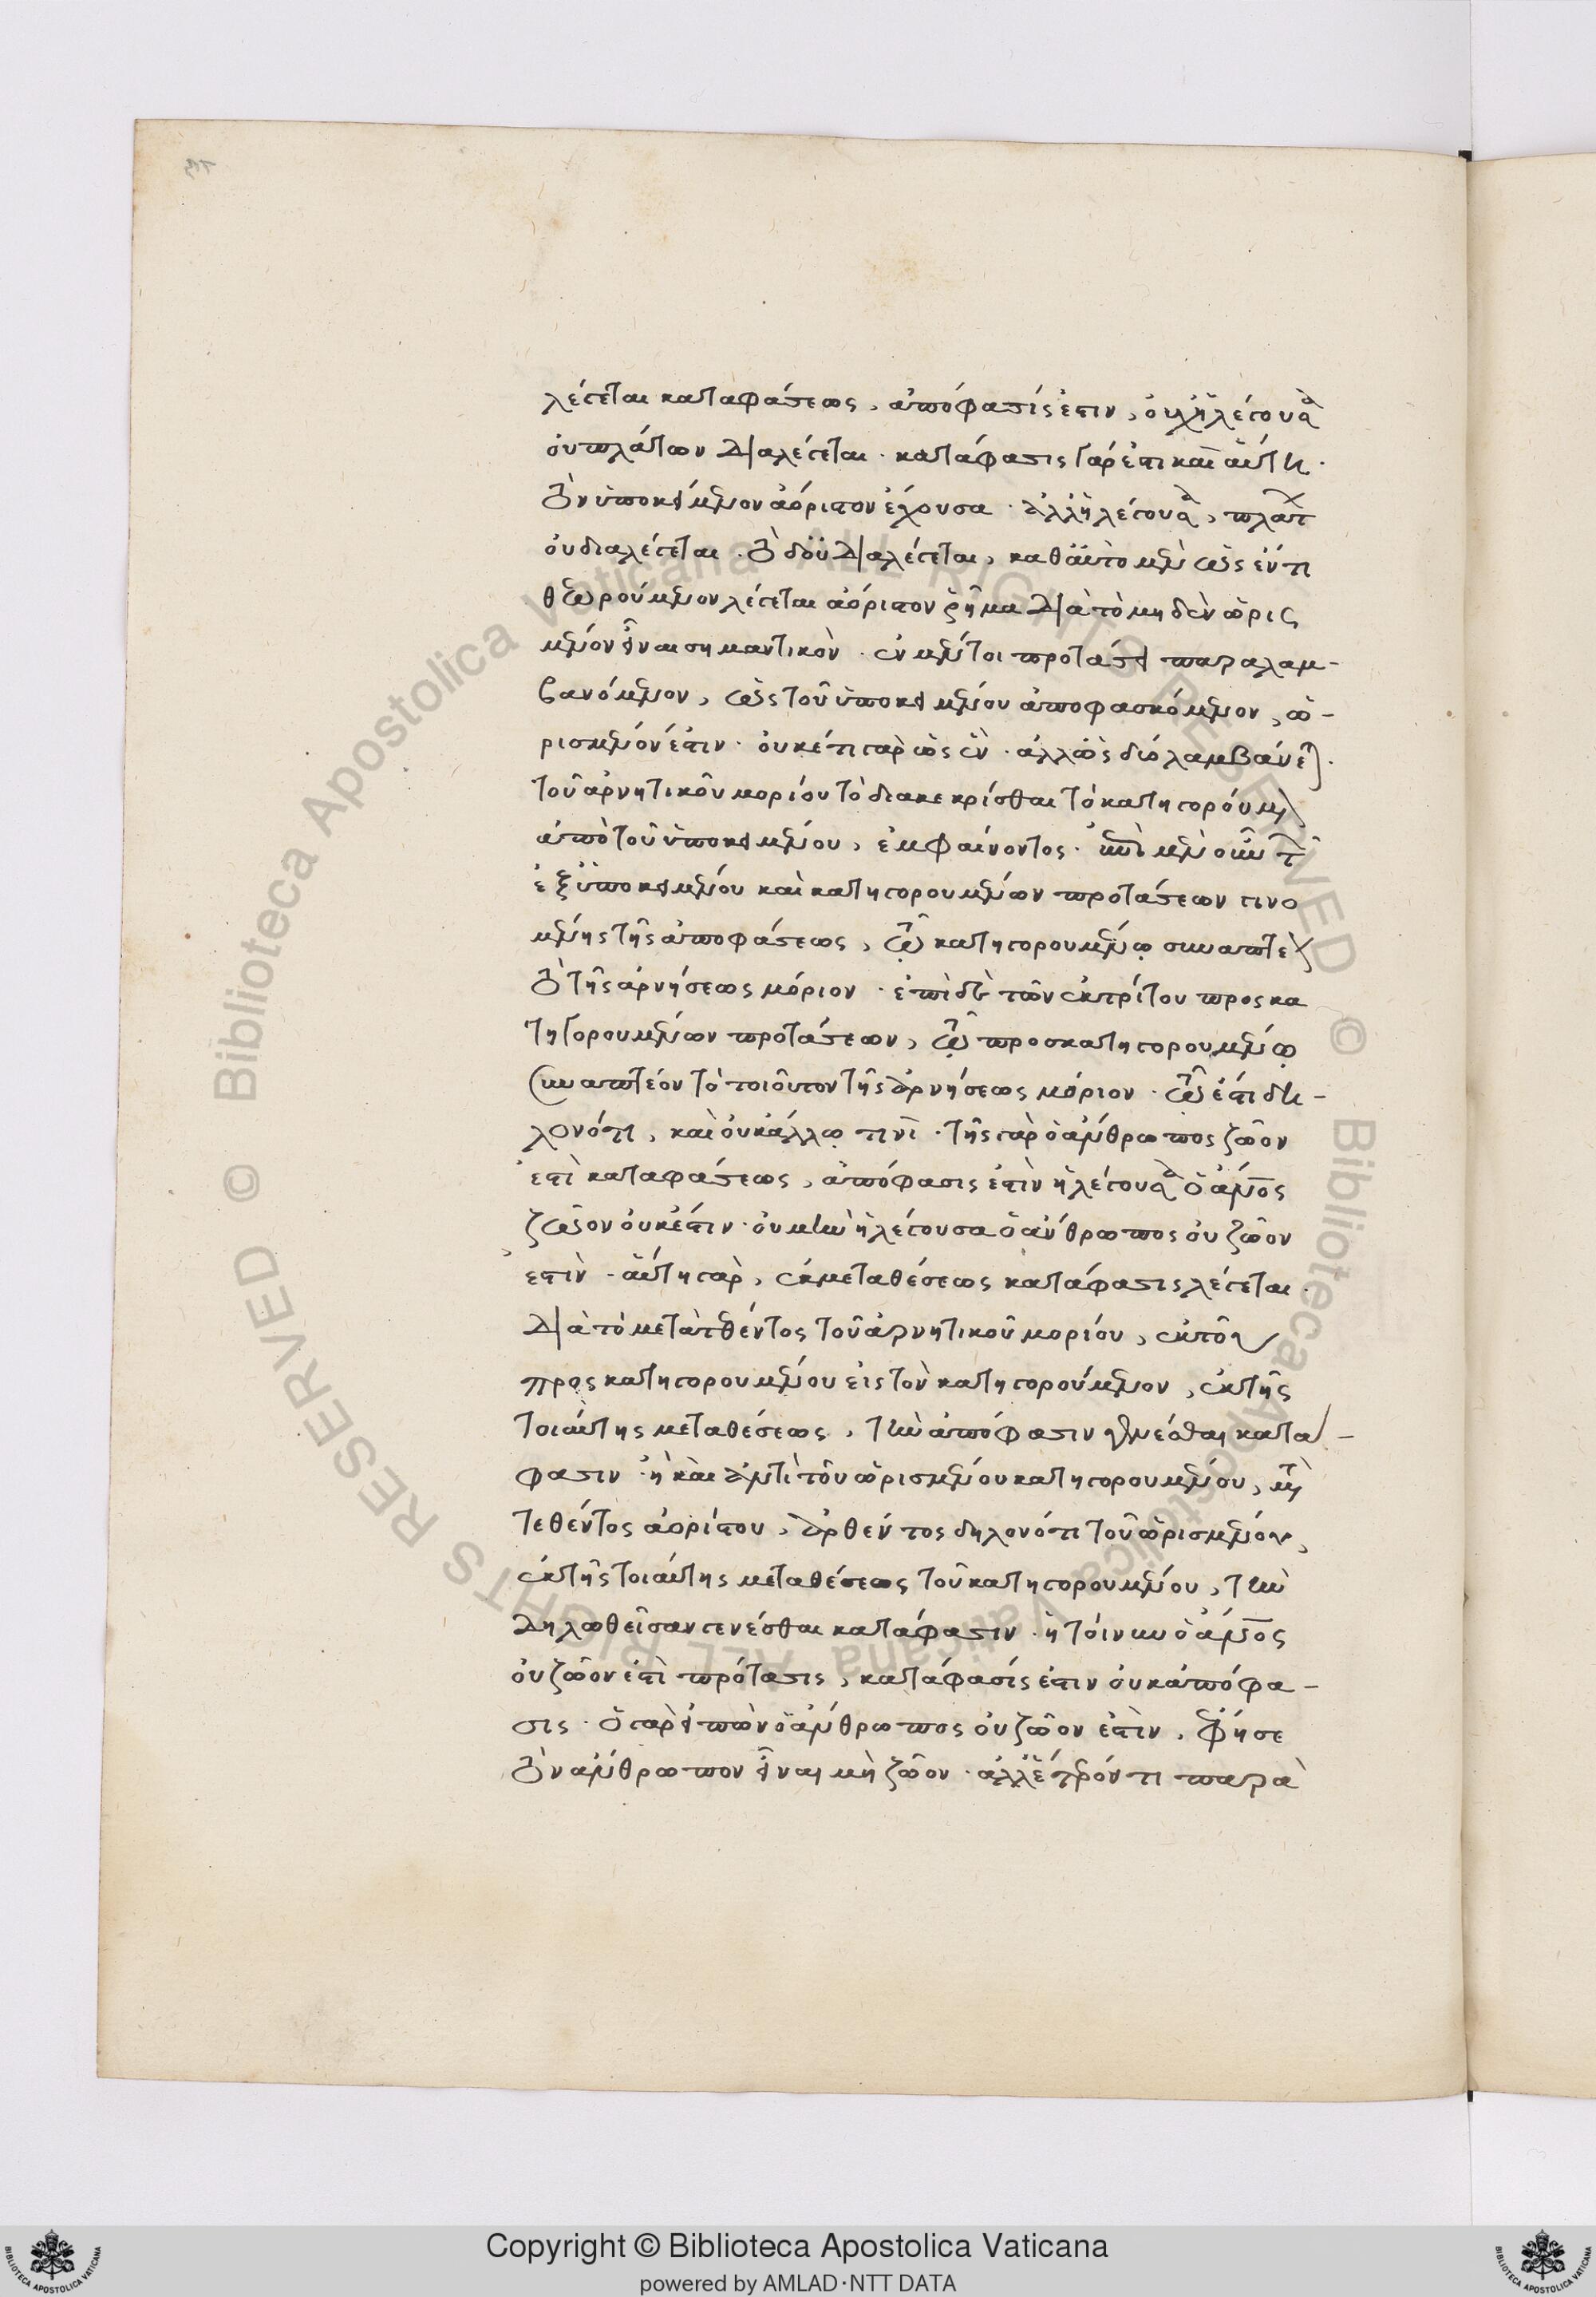 λέγεται καταφάσεως, ἀπόφασίς ἐστιν, οὐχ ἡ λέγουσα
οὐ πλάτων διαλέγεται · κατάφασις γάρ ἐστι καὶ αὕτη ·
τὸν ὑποκείμενον ἀόριστον ἔχουσα · ἀλλ' ἡ λέγουσα, πλάτων
οὐ διαλέγεται · τὸ δ' οὐ διαλέγεται, καθ' αὑτὸ μὲν ὡς ἕν τι
θεωρούμενον λέγεται ἀόριστον ῥῆμα διὰ τὸ μηδὲν ὡρισ
μένον εἶναι σημαντικὸν · ἐν μέντοι προτάσει παραλαμ-
βανόμενον, ὡς τοῦ ὑποκειμένου ἀποφασκόμενον, ὡ-
ρισμένον ἐστιν · οὐκέτι γὰρ ὡς ἓν · ἀλλ' ὡς δύο λαμβάνεται ·
τοῦ ἀρνητικοῦ μορίου τὸ διακεκρίσθαι τὸ κατηγορούμενον
ἀπὸ τοῦ ὑποκειμένου, ἐμφαίνοντος · ἐπὶ μὲν οὖν τῶν
ἐξ ὑποκειμένου καὶ κατηγορουμένων προτάσεων γινο
μένης τῆς ἀποφάσεως, τῷ κατηγορουμένῳ συναπτέον
τὸ τῆς ἀρνήσεως μόριον · ἐπὶ δὲ τῶν ἐκ τρίτου προσκα
τηγορουμένων προτάσεων, τῷ προσκατηγορουμένῳ
συναπτέον τὸ τοιοῦτον τῆς ἀρνήσεως μόριον · τῷ ἐστὶ δη-
λονότι, καὶ οὐκ ἄλλῳ τινὶ · τῆς γὰρ ὁ ἄνθρωπος ζῷον
ἐστὶ καταφάσεως, ἀπόφασις ἐστὶν ἡ λέγουσα ὁ ἄνος
ζῷον οὐκ ἔστιν · οὐ μὴν ἡ λέγουσα ὁ ἄνθρωπος οὐ ζῷον
ἐστὶν · αὕτη γὰρ, ἐκ μεταθέσεως κατάφασις λέγεται ·
διὰ τὸ μετατεθέντος τοῦ ἀρνητικοῦ μορίου, ἐκ τοῦ
προσκατηγορουμένου εἰς τὸν κατηγορούμενον, ἐκ τῆς
τοιαύτης μεταθέσεως, τὴν ἀπόφασιν γενέσθαι κατά-
φασιν · ἢ καὶ ἀντὶ τοῦ ὡρισμένου κατηγορουμένου, μετα
τεθέντος ἀορίστου, ἀρθέντος δηλονότι τοῦ ὡρισμένου,
ἐκ τῆς τοιαύτης μεταθέσεως τοῦ κατηγορουμένου, τὴν
δηλωθεῖσαν γενέσθαι κατάφασιν · ἡ τοίνυν ὁ ἄνος
οὐ ζῷον ἐστὶ πρότασις, κατάφασίς ἐστιν οὐκ ἀπόφα-
σις · ὁ γὰρ εἰπὼν ὁ ἄνθρωπος οὐ ζῷον ἐστὶν, φησὶ
τὸν ἄνθρωπον εἶναι μὴ ζῷον · ἀλλ' ἕτερόν τι παρὰ